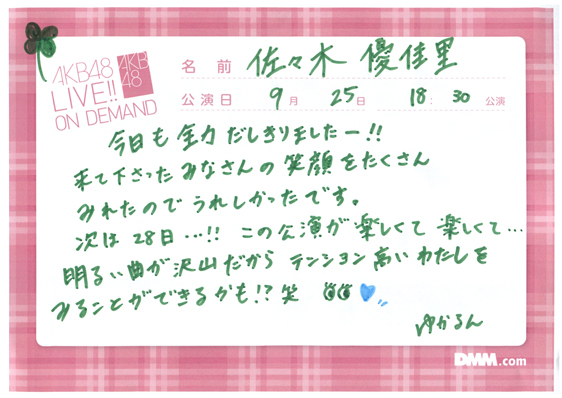 AKB48
LIVE!!
ON DEMAND
AKB
48
名前 佐々木 優佳里
公演日 9月 25日 18:30 公演
今日も全力だしきりましたー!!
来て下さったみなさんの笑顔をたくさん
みれたのでうれしかったです。
次は28日…!! この公演が楽しくて楽しくて…
明るい曲が沢山だから テンション高いわたしを
みることができるかも!? 笑
ゆかるん
DMM.com